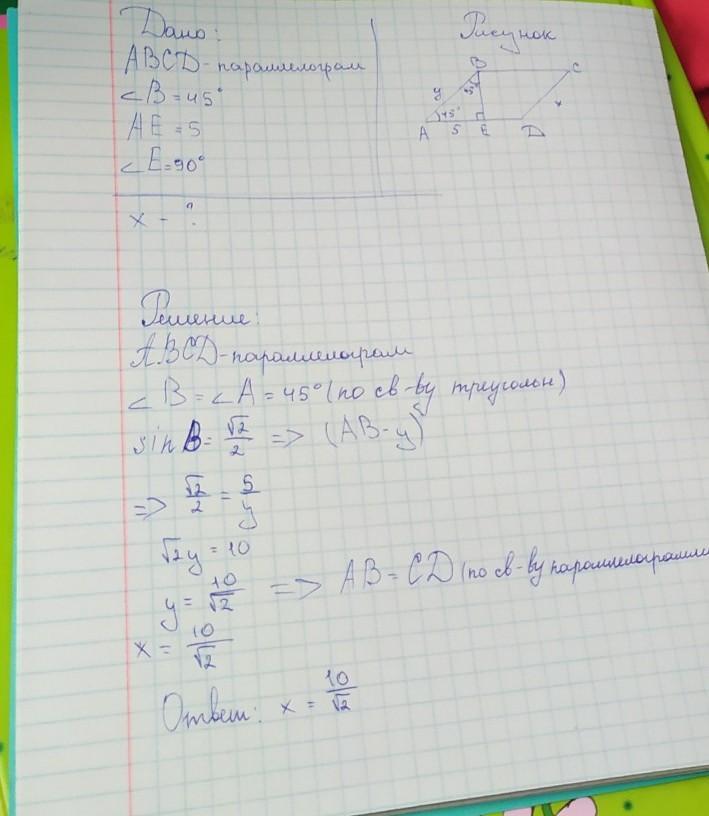 Дано:
ABCD - параллелограм
∠B = 45°
AE = 5
∠E = 90°
x - ?
Рисунок
B
C
y
45°
x
45°
A
5
E
D
Решение:
ABCD - параллелограм
∠B = ∠A = 45° (по св-ву треугольн)
sin B = √2/2 => (AB - y)
=> √2/2 = 5/y
√2y = 10
y = 10/√2 => AB = CD (по св-ву параллелограмма
x = 10/√2
Ответ: x = 10/√2